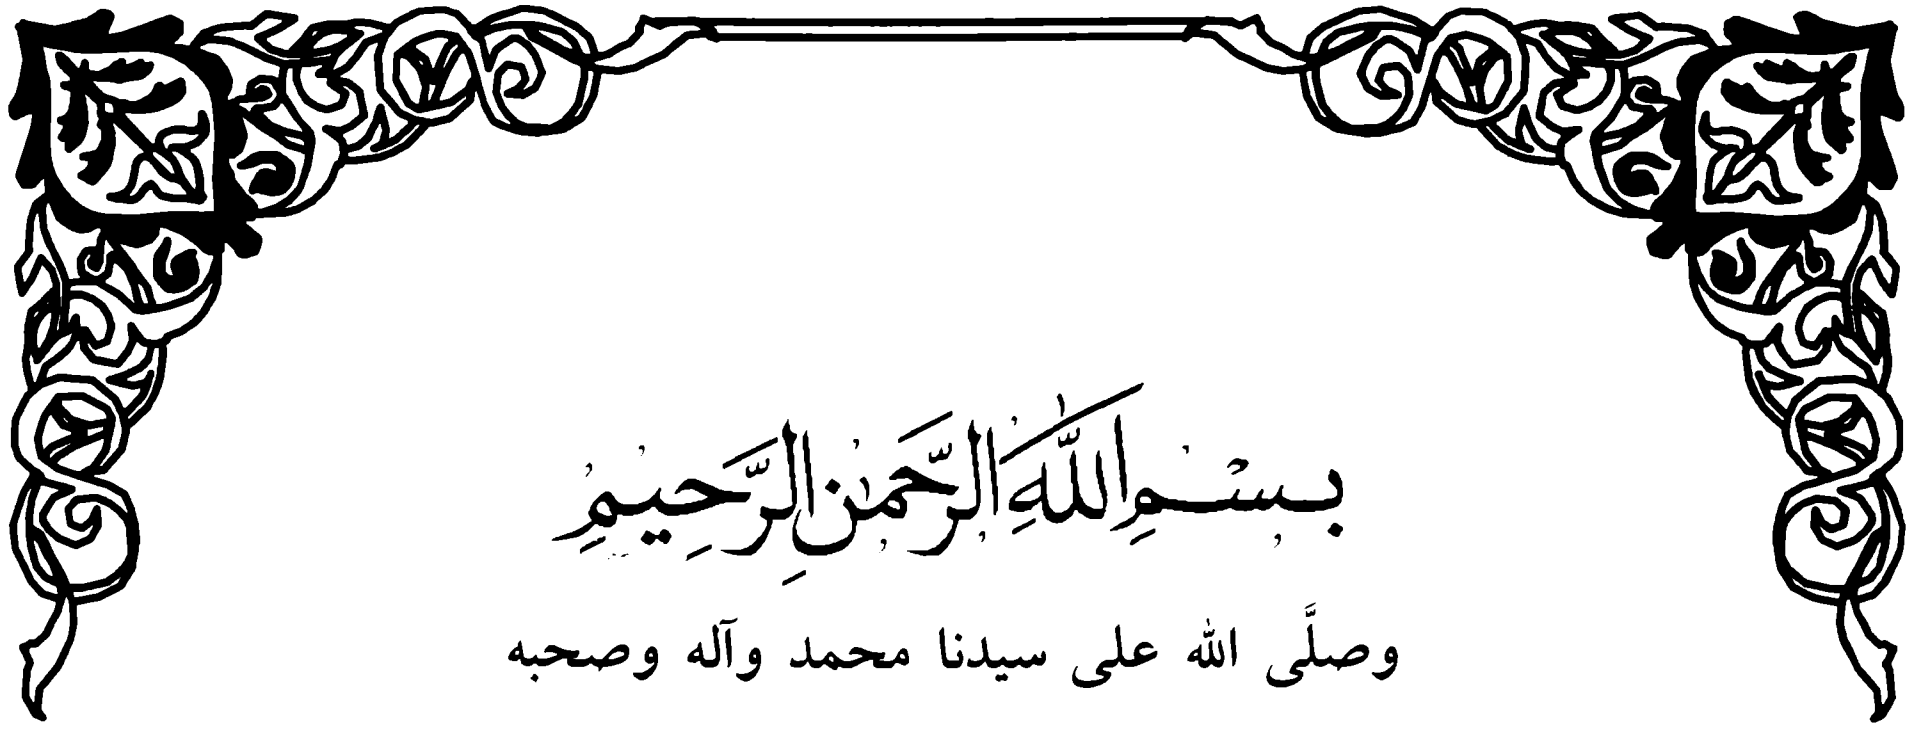 بِسْمِ اللَّهِ الرَّحْمَٰنِ الرَّحِيمِ
وصلَّى الله على سيدنا محمد وآله وصحبه